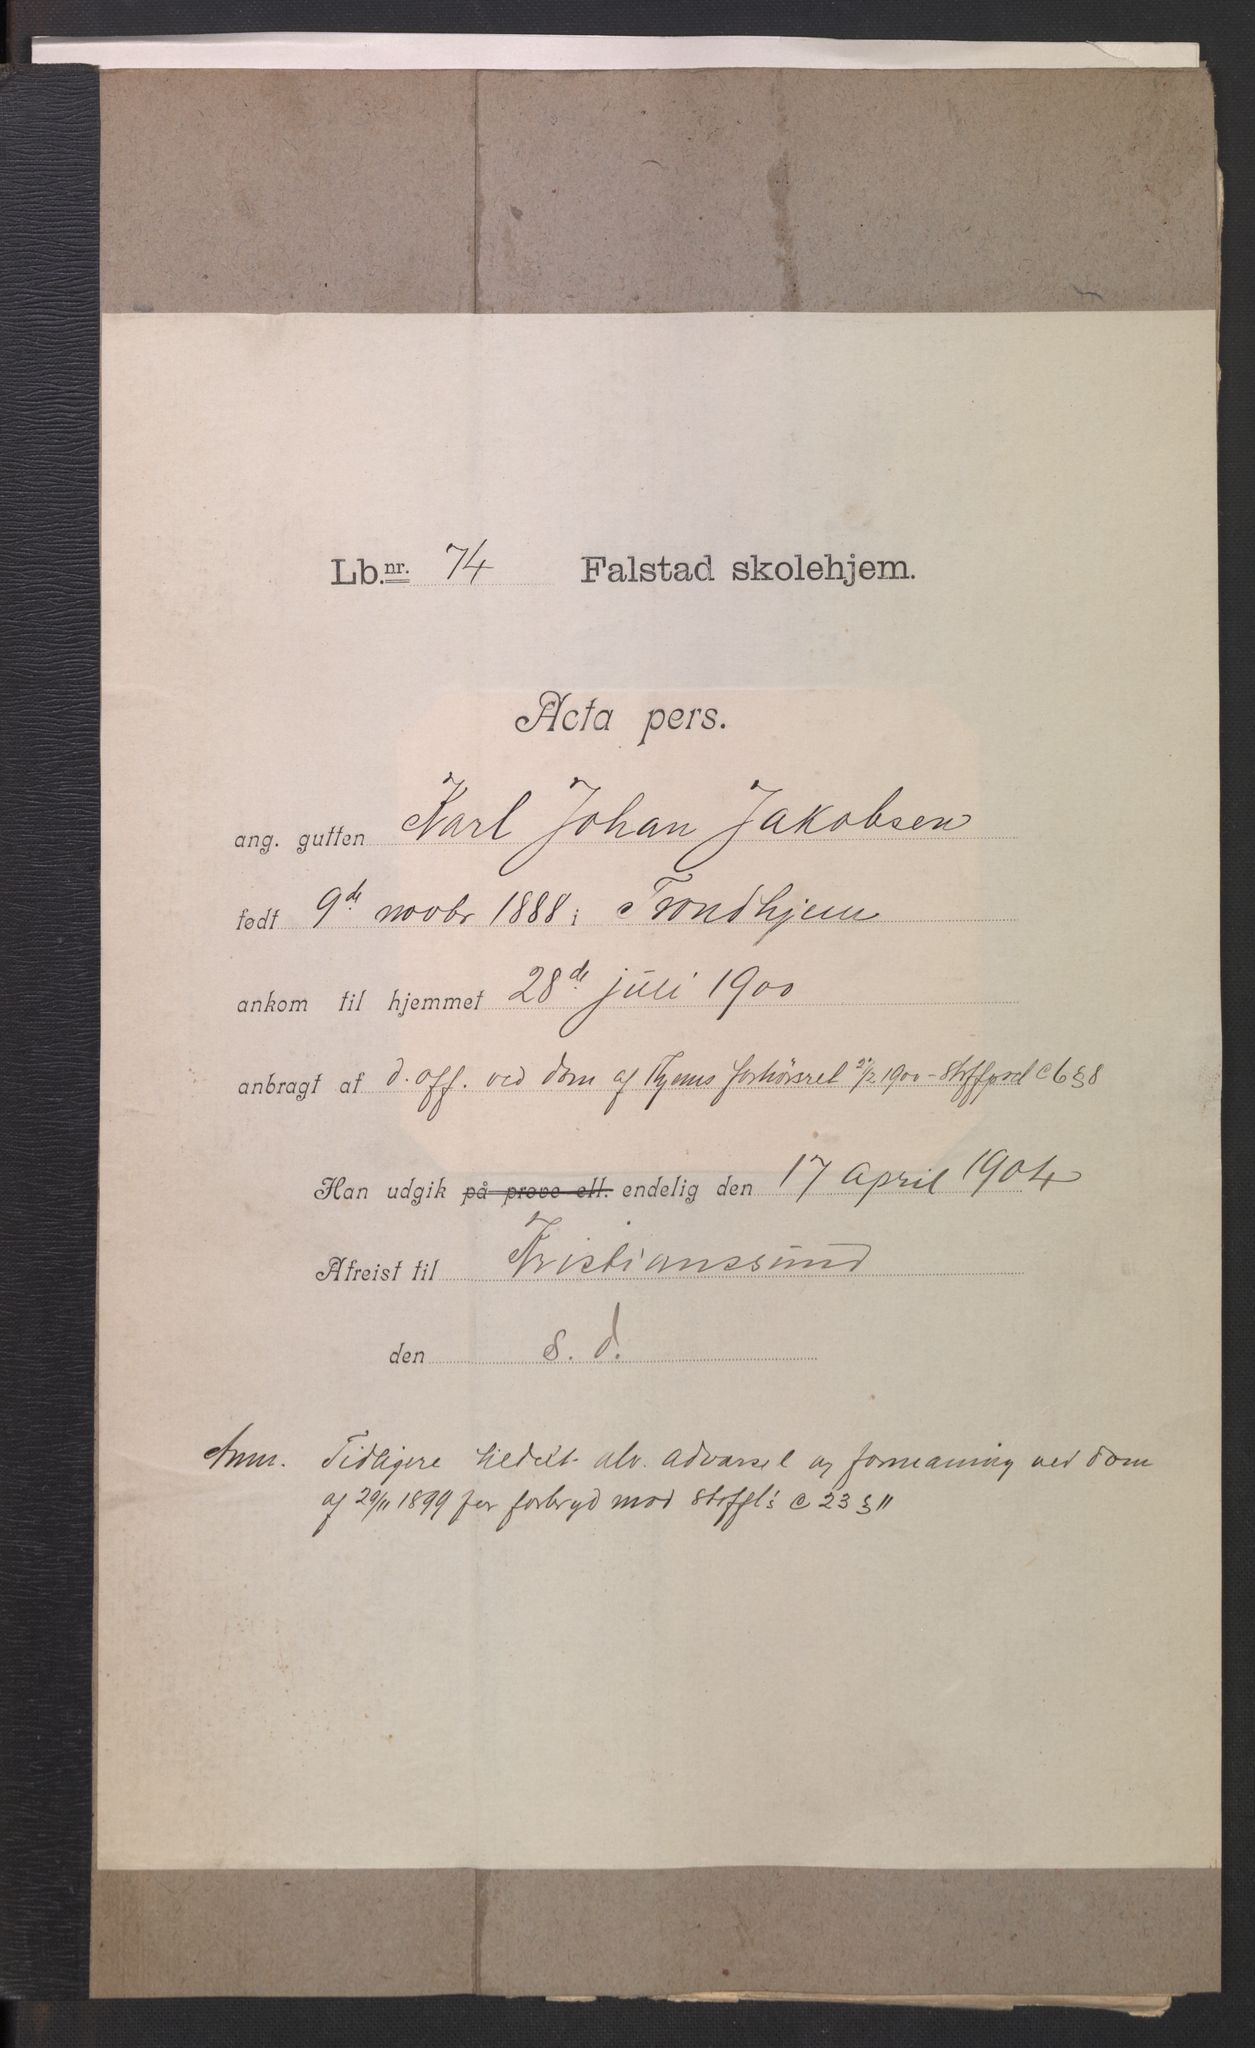 Lb.nr. 74 Falstad skolehjem.
Acta pers.
ang. gutten Karl Johan Jakobsen
født 9de novbr 1888 i Trondhjem
ankom til hjemmet 28de juli 1900
anbragt af d. off. ved dom af Thjems forhörsret 2/2 1900 - Stoffprl C 6 § 8
Han udgik på prøve ell. endelig den 17 april 1904
Afreist til Kristianssund
den s. d.
Anm. Tidligere tildelt alv. advarsel og formaning ved dom
af 29/11 1899 for forbryd mod Stoffl's C 23 § 11